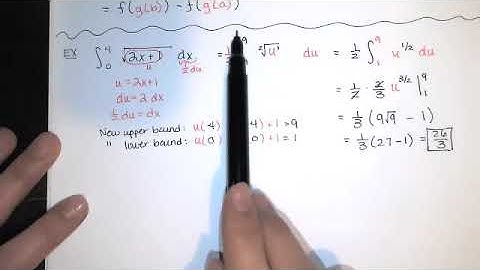 = f(g(b)) - f(g(a))
EX ∫₀⁴ √(2x+1) dx = ½ ⁹ ²√u du = ½ ∫₁⁹ u^(1/2) du
u ½du
u = 2x+1 = ½ · ⅔ · u^(3/2) |₁⁹
du = 2 dx
½ du = dx = ⅓ (9√9 - 1)
New upper bound: u(4) 4)+1 = 9
" lower bound: u(0) 0)+1 = 1 = ⅓ (27-1) = 26/3